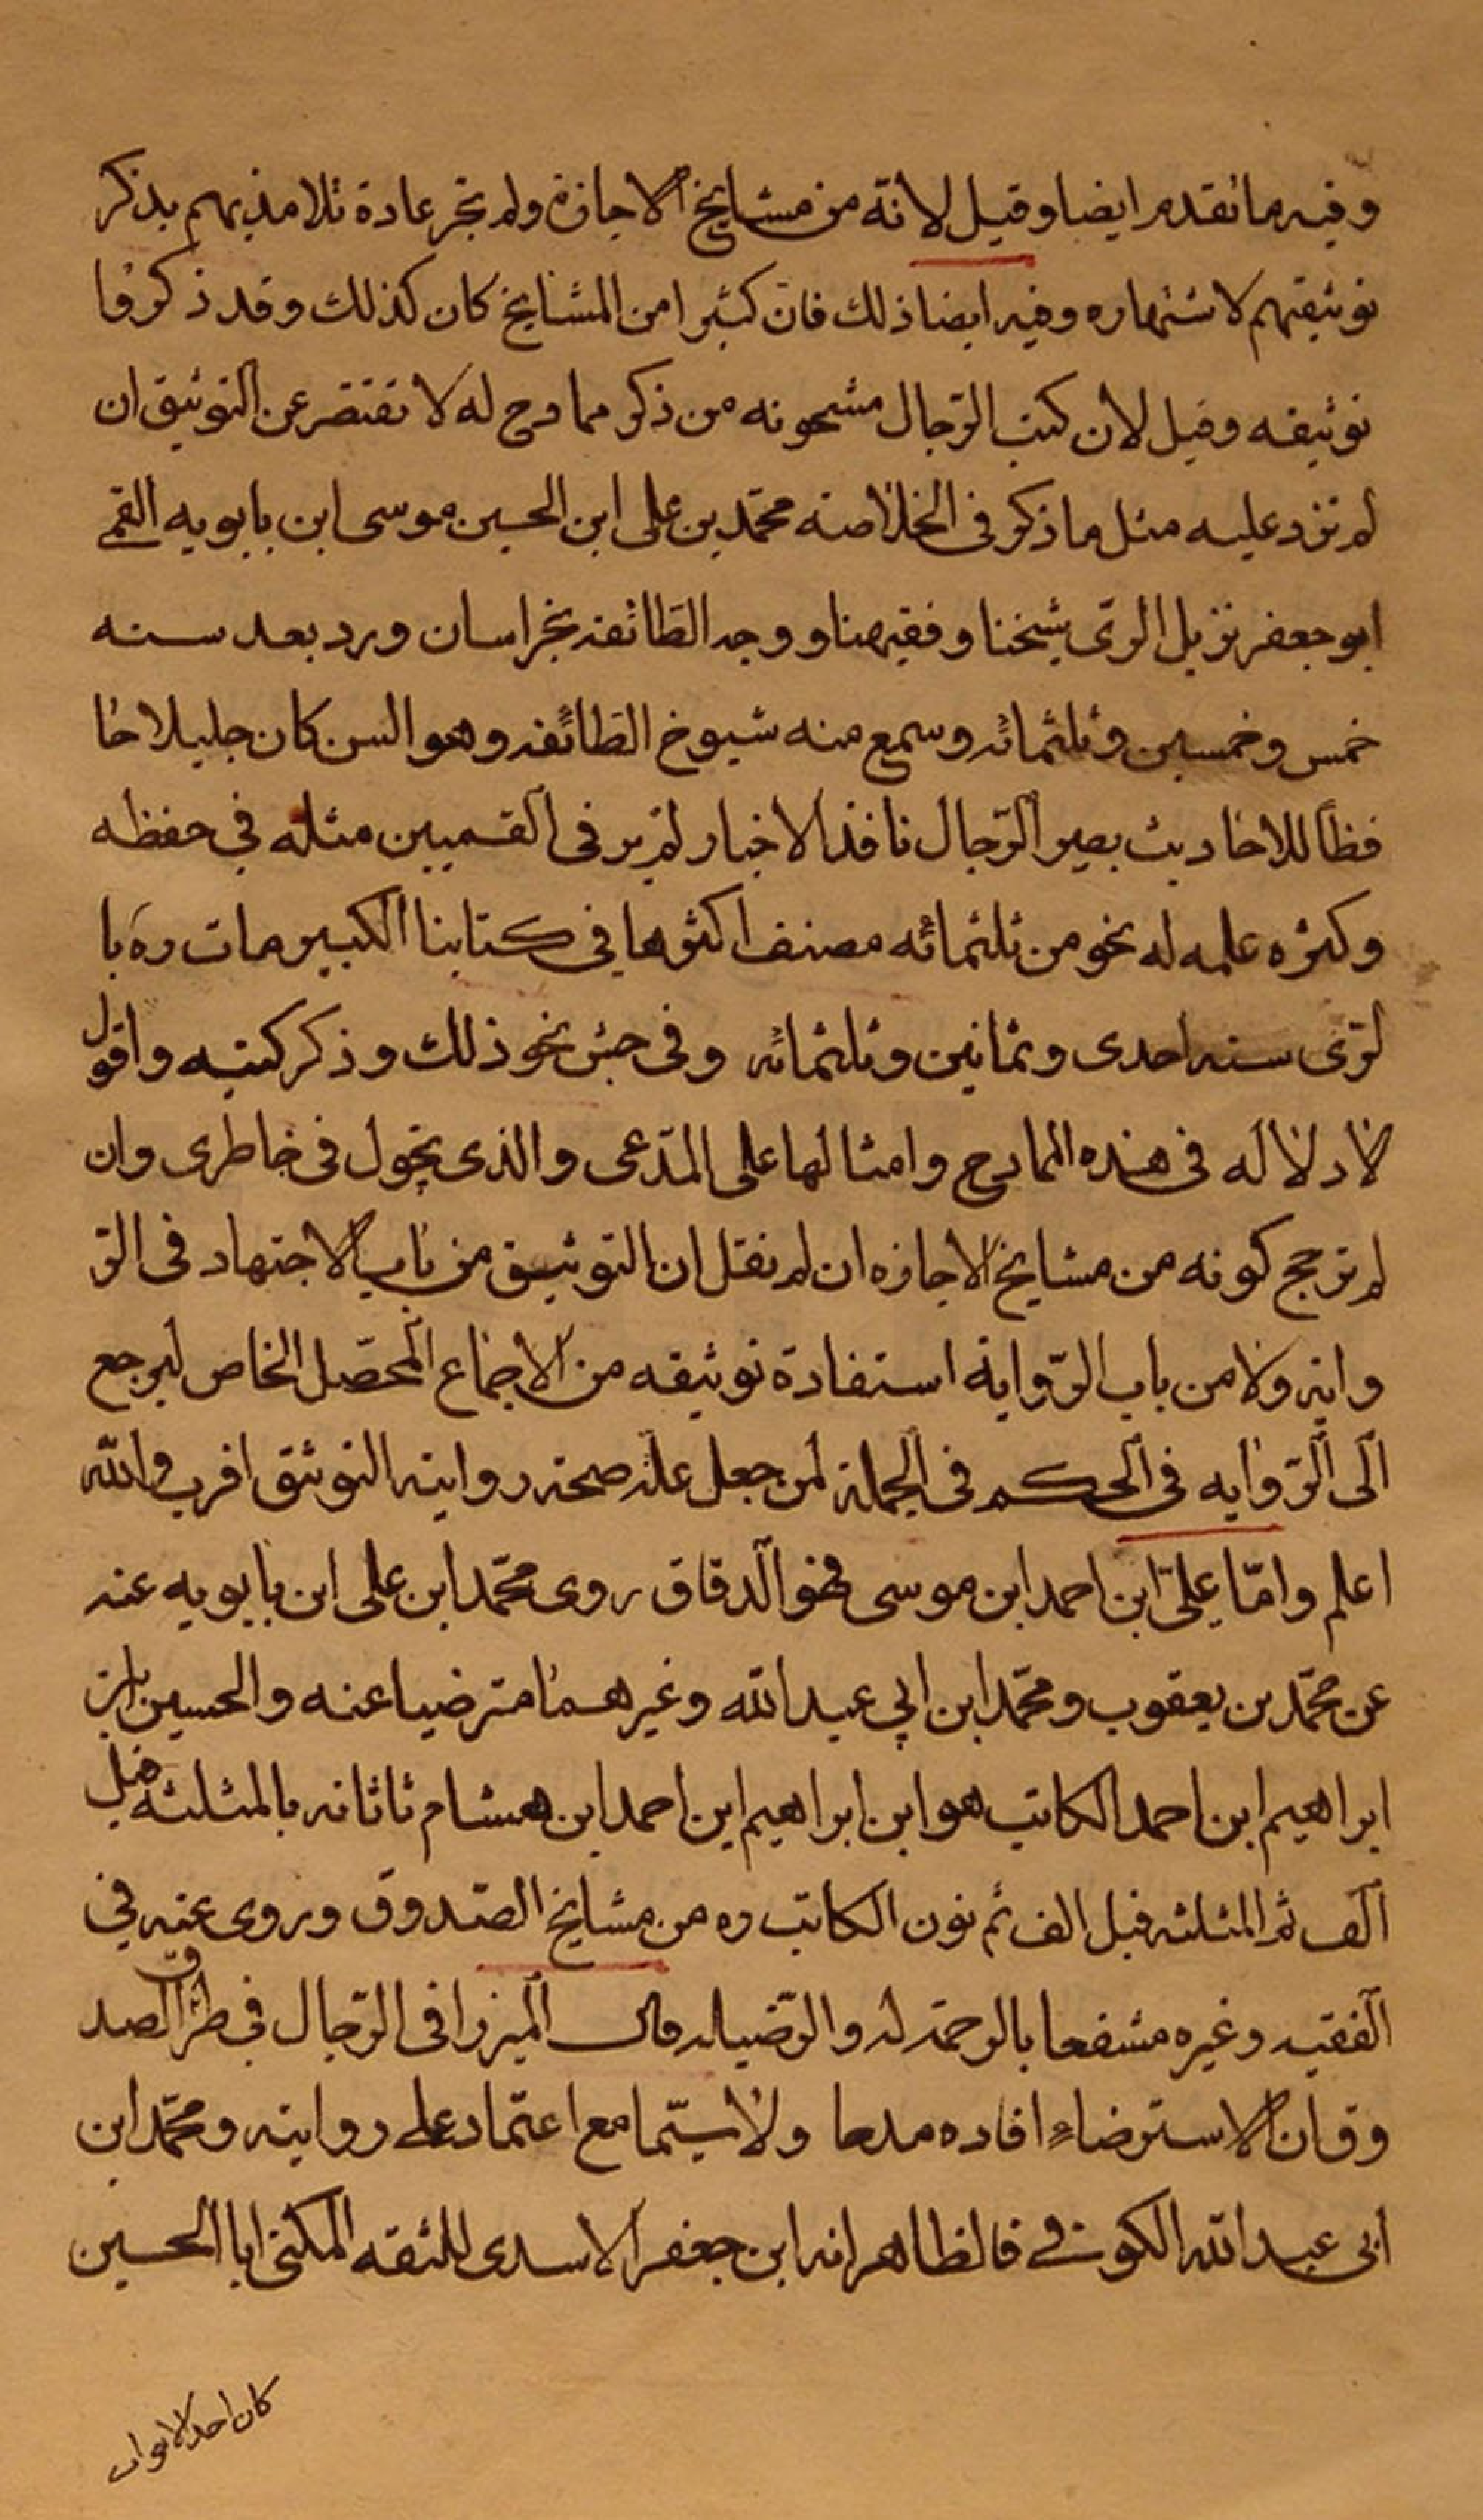 وفيه ما تقدم ايضا وقيل لانّه من مشايخ الاجازة ولم تجر عادة تلامذيهم بذكر
توثيقهم لاشتهاره وفيه ايضا ذلك فان كثيرا من المشايخ كان كذلك وقد ذكروا
توثيقه وقيل لان كتب الرّجال مشحونه من ذكر ممادح له لا تقتصر عن التوثيق ان
لم تزد عليه مثل ما ذكر فى الخلاصه محمّد بن على ابن الحسين موسى ابن بابويه القمى
ابو جعفر نزيل الرىّ شيخنا وفقيهنا ووجه الطائفه بخراسان ورد بعد سنه
خمس وخمسين وثلثمائه وسمع منه شيوخ الطائفه وهو السن كان جليلا حا
فظا للاحاديث بصير الرّجال نافذ الاخبار لم ير فى القميين مثله في حفظه
وكثره علمه له نحو من ثلثمائه مصنف اكثرها فى كتابنا الكبير مات ره با
لرّى سنه احدى وثمانين وثلثمائه وفى جش نحو ذلك وذكر كتبه واقول
لا دلاله فى هذه الممادح وامثالها على المدّعى والذى يجول فى خاطرى وان
لم ترجح كونه من مشايخ الاجازه ان لم نقل ان التوثيق من باب الاجتهاد فى الرّ
وايه ولا من باب الرّواية استفادة توثيقه من الاجماع المحصّل الخاص ليرجع
الى الرّوايه فى الحكم فى الجملة لمن جعل علة صحة روايته التوثق اقرب والله
اعلم وامّا علىّ ابن احمد ابن موسى فهو الدقاق روى محمّد ابن على ابن بابويه عنه
عن محمّد بن يعقوب ومحمّد ابن ابي عبد الله وغيرهما مترضيا عنه والحسين ابن
ابراهيم ابن احمد الكاتب هو ابن ابراهيم ابن احمد ابن هشام ثاثانه بالمثلثه قبل
الف ثم المثلثه قبل الف ثم نون الكاتب ره من مشايخ الصّدوق وروى عنه في
الفقيه وغيره مشفعا بالرحمة له والرّضيله قال الميرزا فى الرّجال فى طرق الصد
وق ان الاسترضاء افاده مدحا ولا سيّما مع اعتماد على روايته ومحمّد ابن
ابى عبد الله الكوفى فالظاهر انه ابن جعفر الاسدى للثقه المكنى ابا الحسين
كان احد الابواب